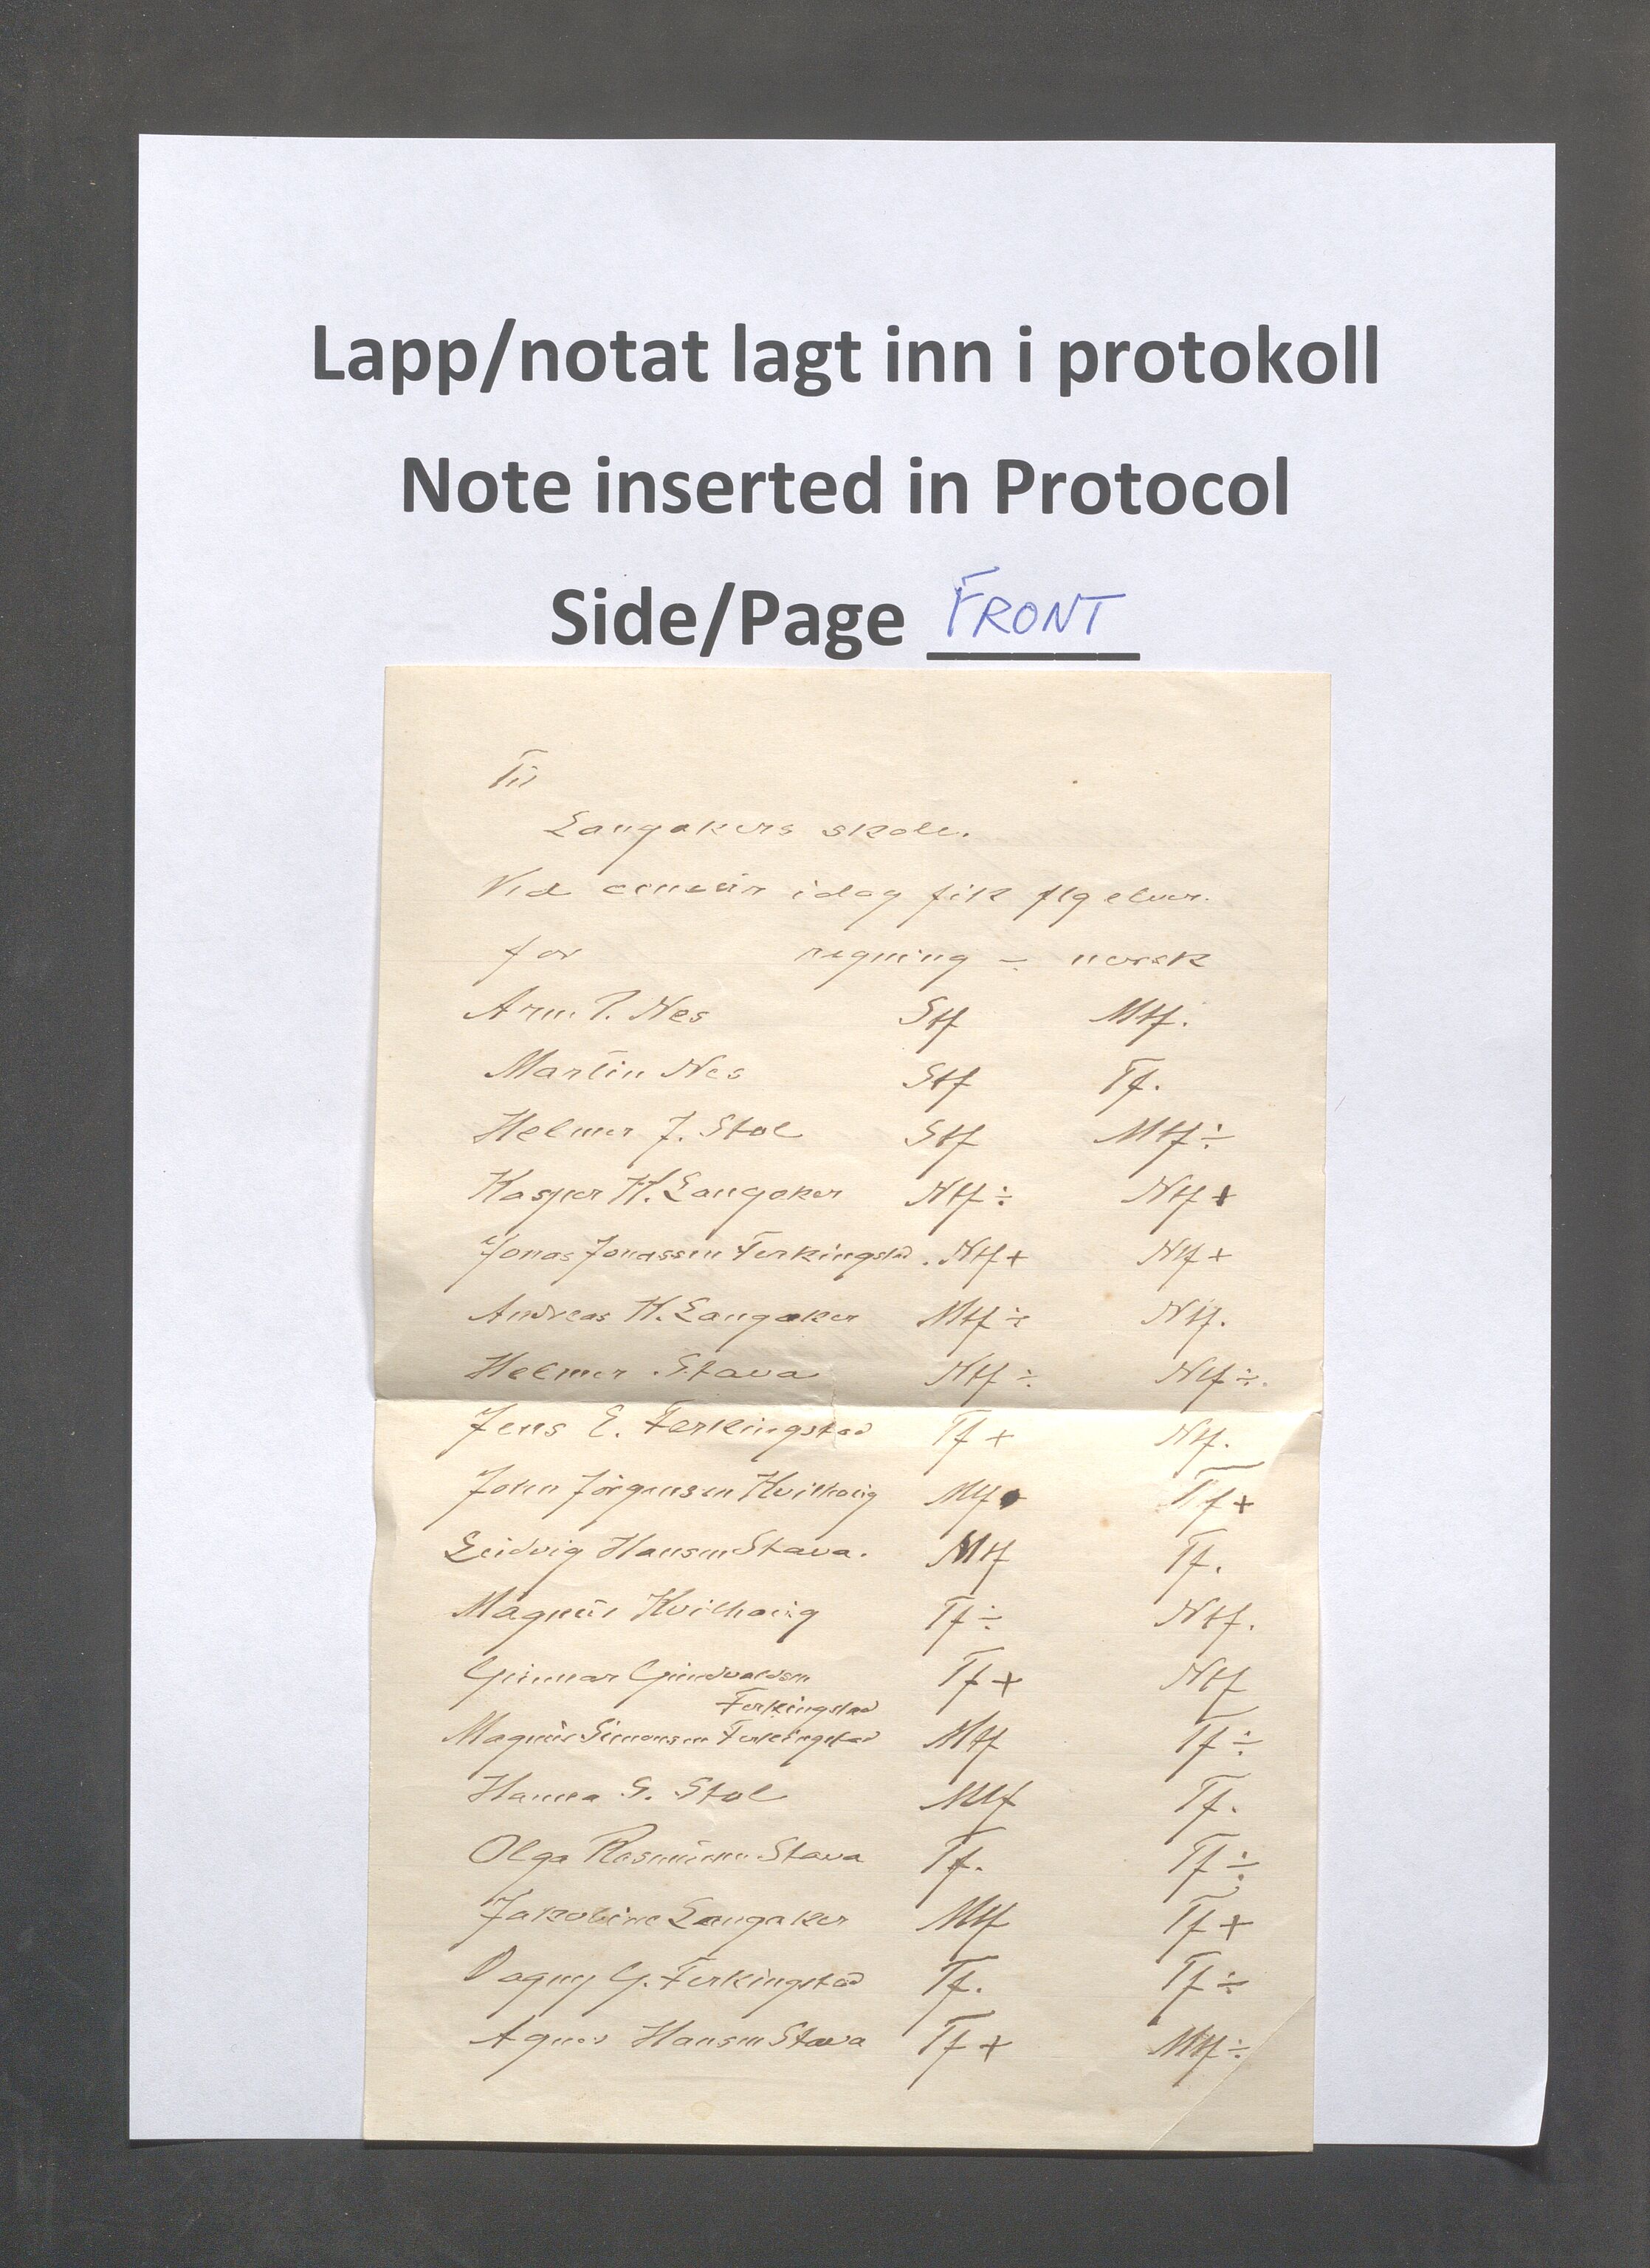 Lapp/notat lagt inn i protokoll
Note inserted in Protocol
Side/Page FRONT
Til
Langakers skole.
Ved censur idag fik flg elever.
for regning ÷ norsk
Arn. T. Nes Stf Mtf.
Martin Nes Stf Tf.
Helmer J. Stol Stf Mtf ÷
Kasper H. Langaker Ntf ÷ Ntf +
Jonas Jonassen Ferkingstad. Ntf + Ntf +
Andreas H. Langaker Mtf ÷ Ntf.
Helmer Stava Ntf ÷ Ntf ÷.
Jens E. Ferkingstad Tf + Ntf.
John Jörgensen Kvilhaug Mtf Tf +
Leidvig Hansen Stava. Mtf Tf.
Magnus Kvilhaug Tf ÷ Ntf.
Gunnar Gundvaldsen Tf + Ntf
Ferkingstad
Magnus Simonsen Ferkingstad Mtf Tf ÷
Hanna G. Stol Mtf Tf.
Olga Rasmussen Stava Tf. Tf ÷
Jakobine Langaker Mtf Tf +
Dagny G. Ferkingstad Tf. Tf ÷
Agnes Hansen Stava Tf + Mtf ÷